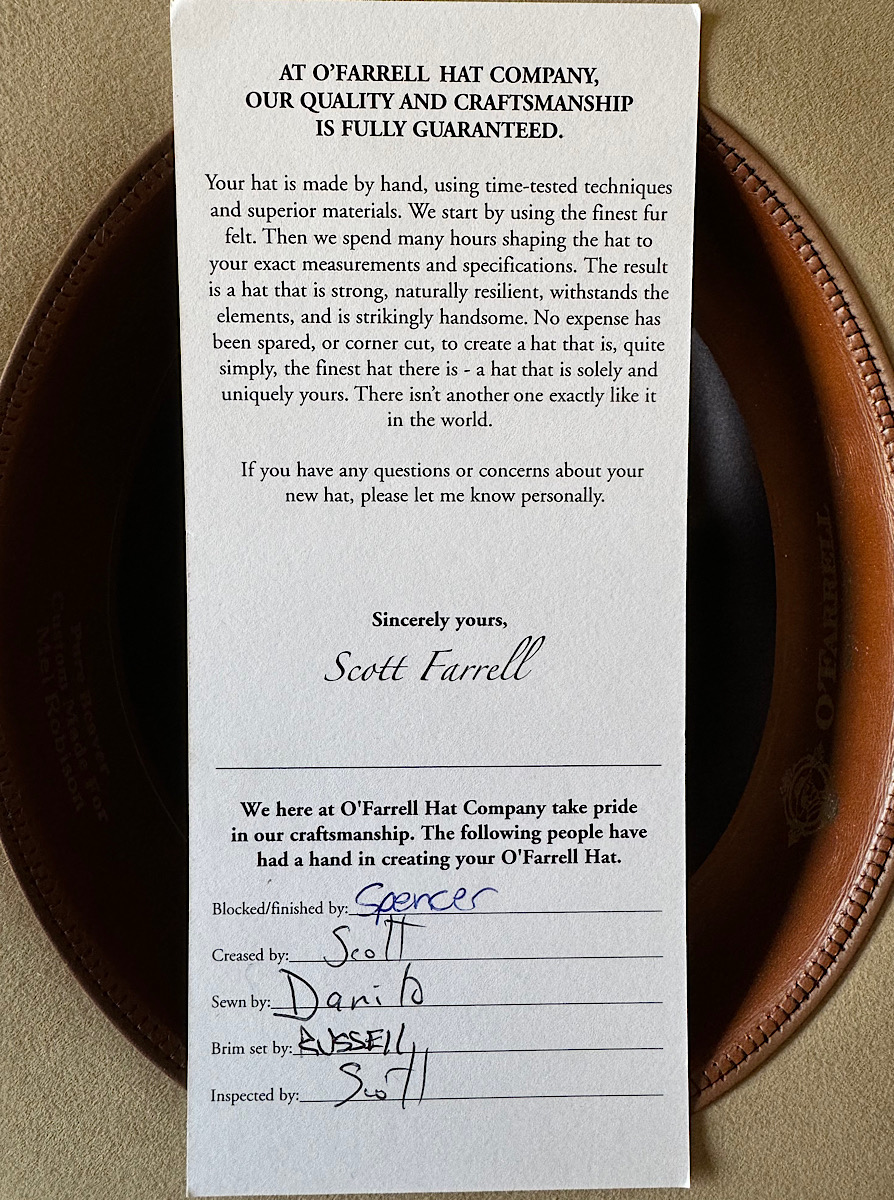 AT O'FARRELL HAT COMPANY,
OUR QUALITY AND CRAFTSMANSHIP
IS FULLY GUARANTEED.
Your hat is made by hand, using time-tested techniques
and superior materials. We start by using the finest fur
felt. Then we spend many hours shaping the hat to
your exact measurements and specifications. The result
is a hat that is strong, naturally resilient, withstands the
elements, and is strikingly handsome. No expense has
been spared, or corner cut, to create a hat that is, quite
simply, the finest hat there is - a hat that is solely and
uniquely yours. There isn't another one exactly like it
in the world.
If you have any questions or concerns about your
new hat, please let me know personally.
Sincerely yours,
Scott Farrell
We here at O'Farrell Hat Company take pride
in our craftsmanship. The following people have
had a hand in creating your O'Farrell Hat.
Blocked/finished by: Spencer
Creased by: Scott
Sewn by: Danilo
Brim set by: RUSSELL
Inspected by: Scott
O'FARRELL
Pure Beaver
Custom Made For
Mel Robison